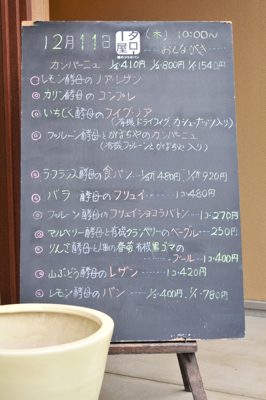 12月11日
タロー屋
(木) 10:00〜
おしながき
カンパーニュ ¼ 410円 ½ 800円 1ケ 1540円
レモン酵母のノアレザン
カリン酵母のコンプレ
いちじく酵母のフィグ・ノア
(有機ドライフィグ カシューナッツ入り)
プルーン酵母とかぼちゃのカンパーニュ
(有機プルーンとかぼちゃと入り)
ラフランス酵母の食パン … ½斤480円 1斤920円
バラ 酵母のフリュイ …… 1コ 480円
プルーン酵母のフリュイショコラバトン … 1コ 270円
マルベリー酵母と有機クランベリーのベーグル … 250円
りんご酵母と 有機黒ゴマの
ブール … 1コ 400円
山ぶどう酵母のレザン …… 1コ 420円
レモン酵母のパン …… ½ 400円、1ケ 780円